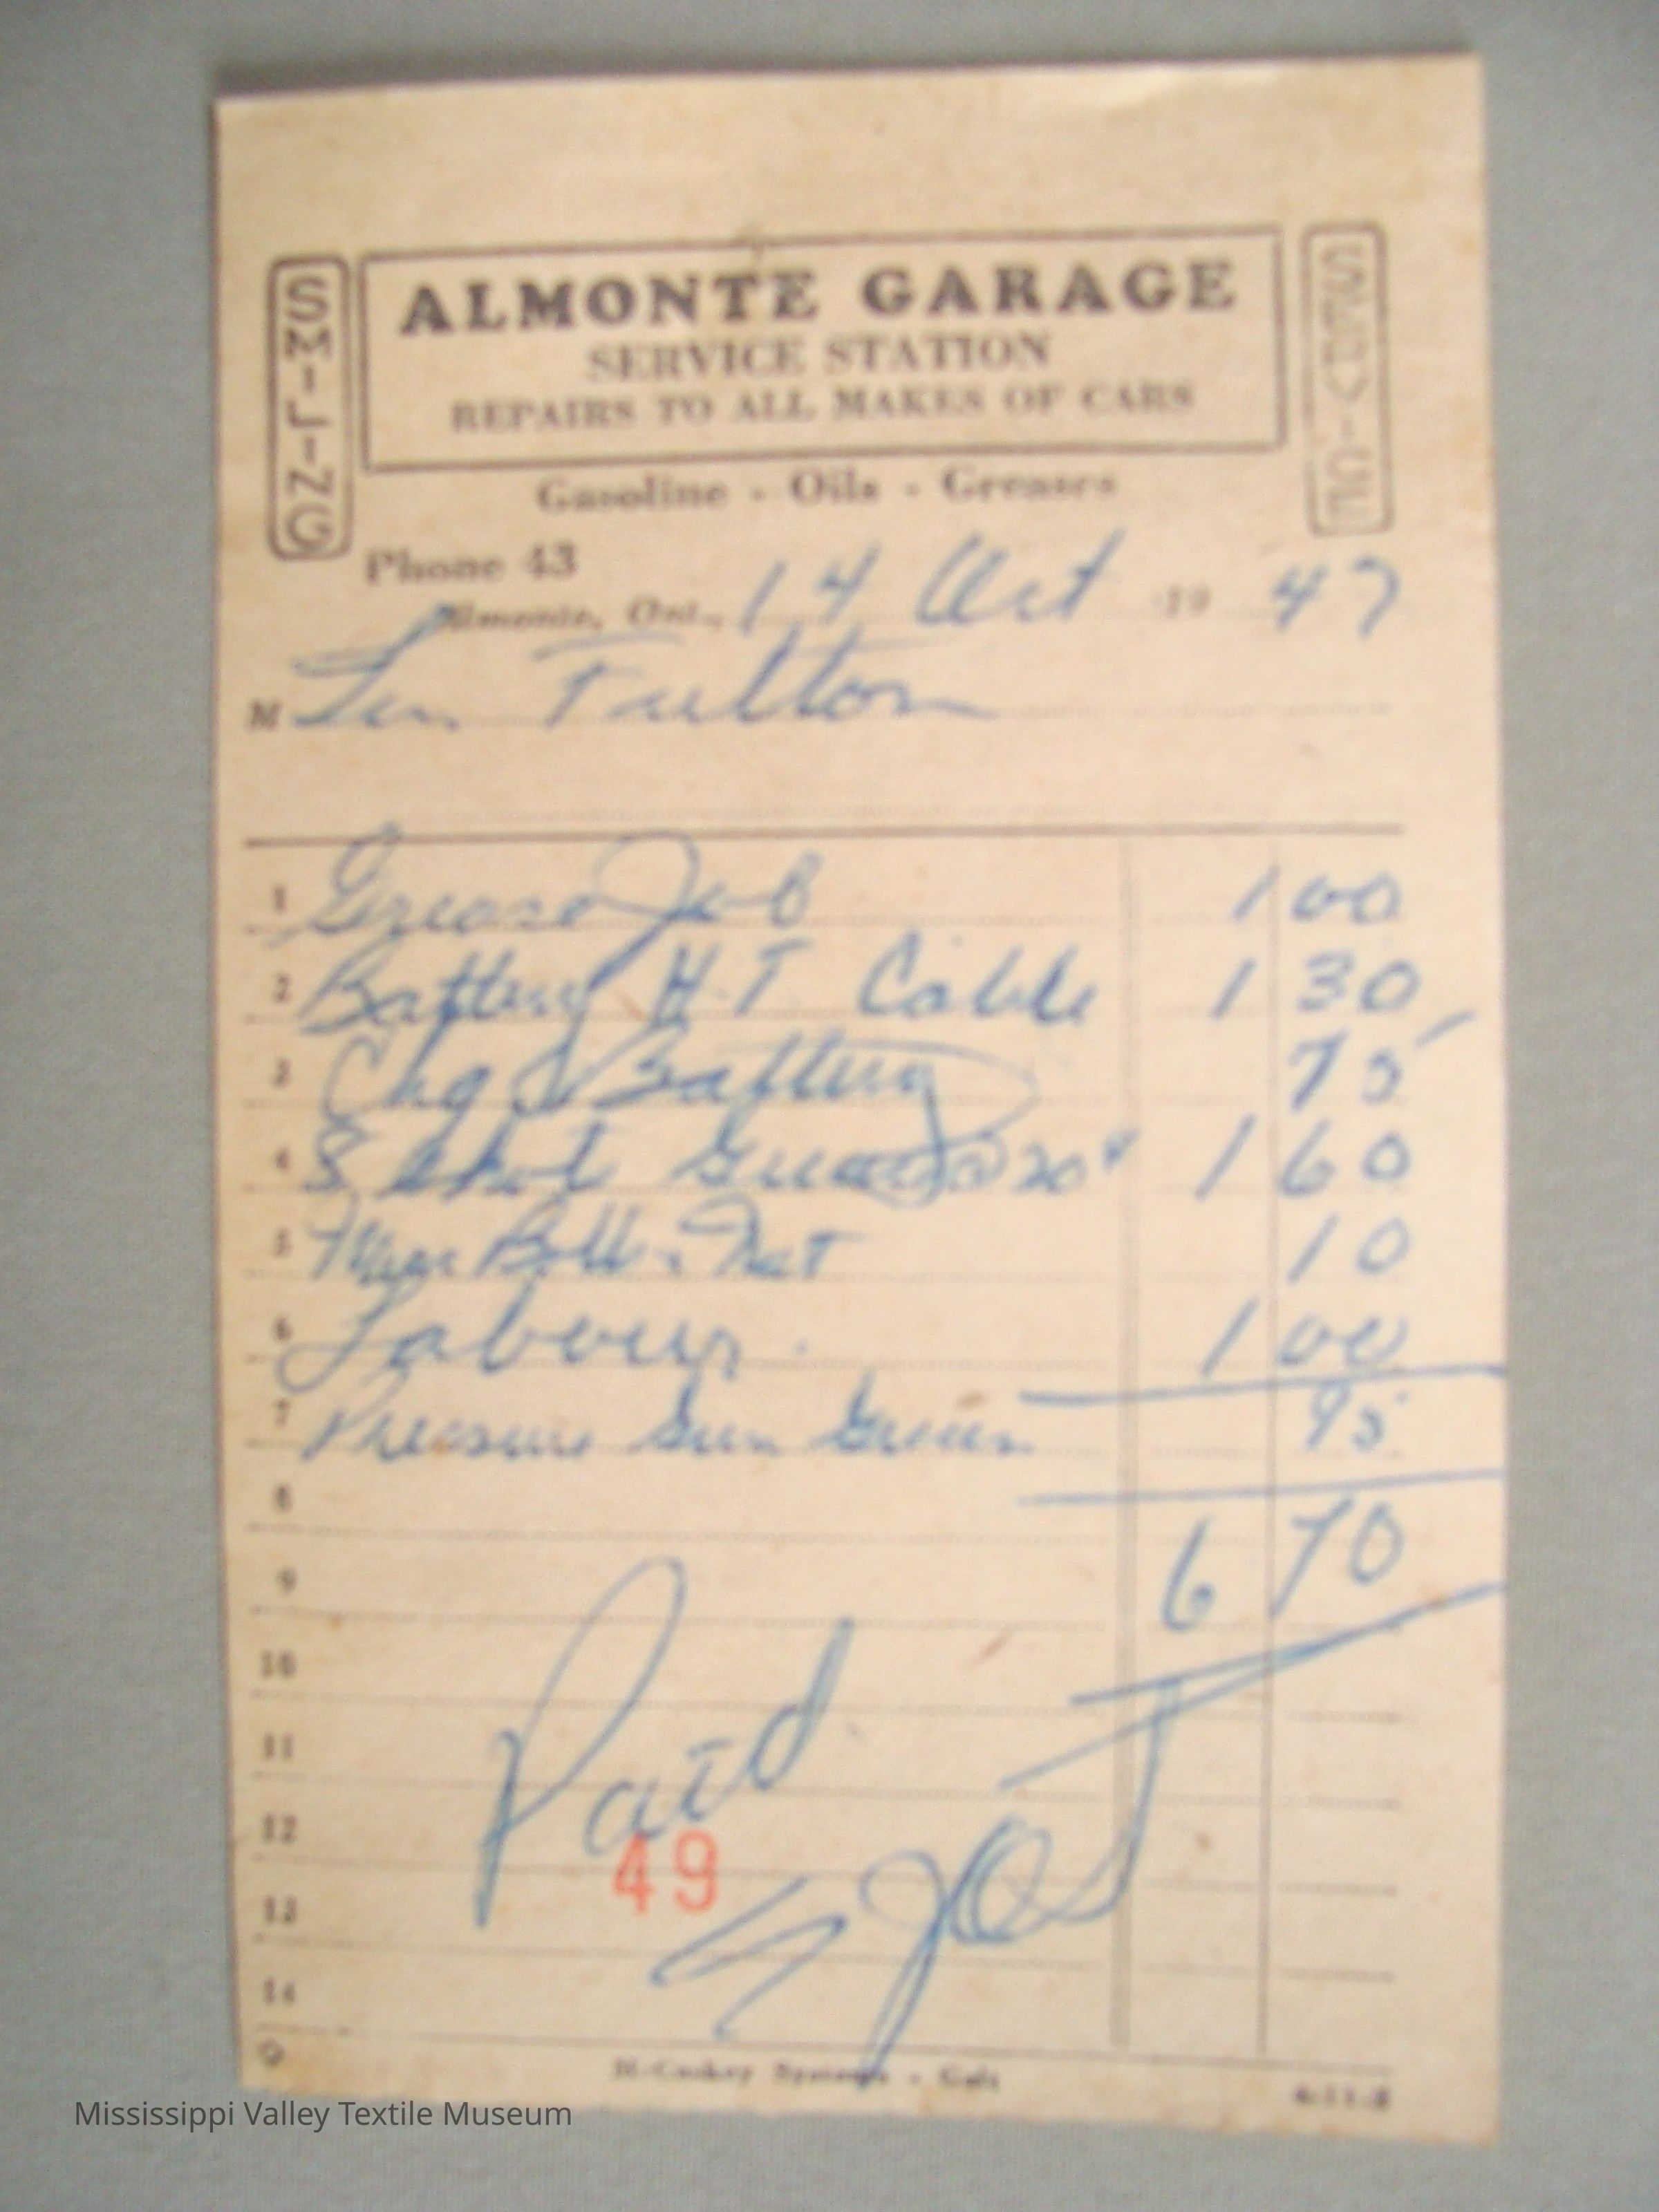 SMILING
ALMONTE GARAGE
SERVICE STATION
REPAIRS TO ALL MAKES OF CARS
SERVICE
Gasoline - Oils - Greases
Phone 43
Almonte, Ont., 14 Oct 19 47
M Len Fulton
1 Grease Job 1 00
2 Battery H.T. Cable 1 30
3 Chg Battery 75
4 8 shot @ 20¢ 1 60
5 Bolt Nut 10
6 Labour. 1 00
7 Pressure Gun 95
8
6 70
9
10
11 Paid
12
49
13
14
McCaskey Systems - Galt
Mississippi Valley Textile Museum